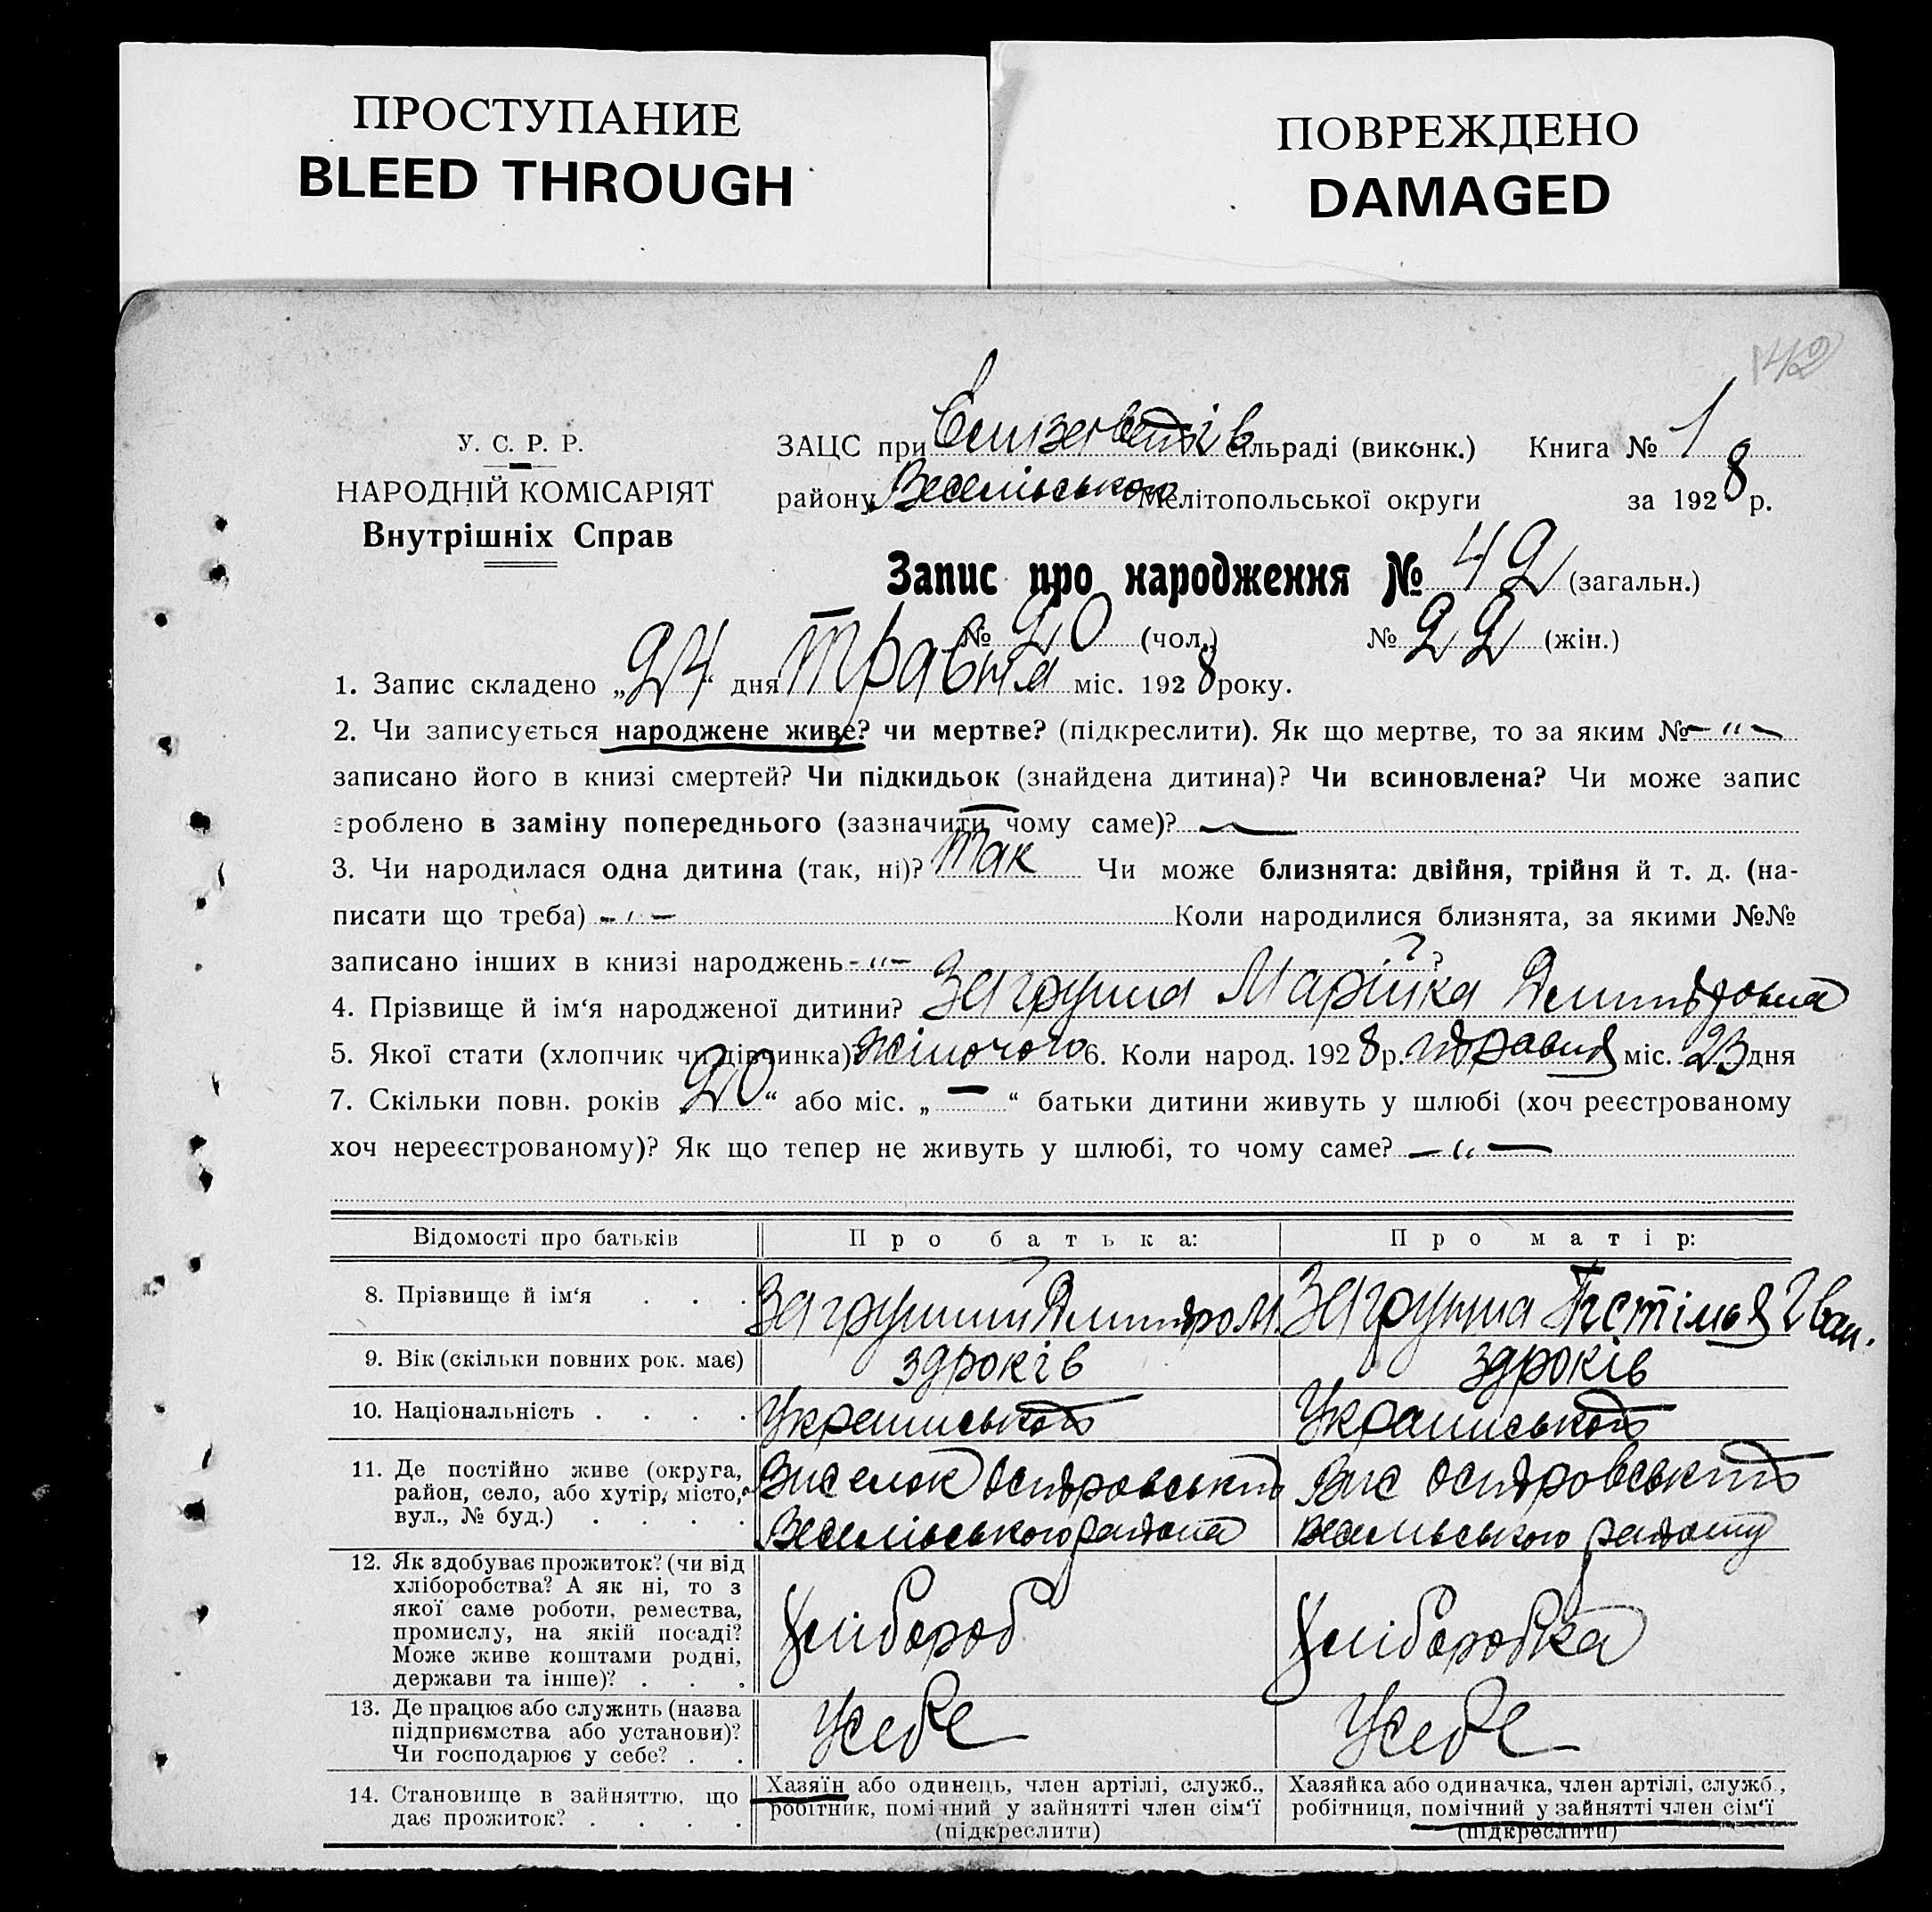 ПРОСТУПАНИЕ
BLEED THROUGH
ПОВРЕЖДЕНО
DAMAGED
142
У. С. Р. Р.
НАРОДНІЙ КОМІСАРІЯТ
Внутрішніх Справ
ЗАЦС при сільраді (виконк.) Книга № 1
району Веселівського Мелітопольської округи за 1928 р.
Запис про народження № 42 (загальн.)
№ 20 (чол.) № 22 (жін.)
1. Запис складено „24“ дня Травня міс. 1928 року.
2. Чи записується народжене живе? чи мертве? (підкреслити). Як що мертве, то за яким № – " –
записано його в книзі смертей? Чи підкидьок (знайдена дитина)? Чи всиновлена? Чи може запис
зроблено в заміну попереднього (зазначити чому саме)? —
3. Чи народилася одна дитина (так, ні)? Так Чи може близнята: двійня, трійня й т. д. (на-
писати що треба) - " - Коли народилися близнята, за якими №№
записано інших в книзі народжень - " - ?
4. Прізвище й ім‘я народженої дитини? Загрунна Марійка Дмитровна
5. Якої стати (хлопчик чи дівчинка) жіночого 6. Коли народ. 1928 р. травня міс. 23 дня
7. Скільки повн. років „20“ або міс. „—“ батьки дитини живуть у шлюбі (хоч реєстрованому
хоч нереєстрованому)? Як що тепер не живуть у шлюбі, то чому саме? — " —
Відомості про батьків Про батька: Про матір:
8. Прізвище й ім‘я . . . Дмитро М. Іван.
9. Вік (скільки повних рок. має) років років
10. Національність . . . . Українського Українського
11. Де постійно живе (округа,
район, село, або хутір, місто,
вул., № буд.) . . . .
Виселок Островський
Веселівського района
Вис Островський
Веселівського району
12. Як здобуває прожиток? (чи від
хліборобства? А як ні, то з
якої саме роботи, ремества,
промислу, на якій посаді?
Може живе коштами родні,
держави та інше)? . . .
Хлібороб
Хліборобка
13. Де працює або служить (назва
підприємства або установи)?
Чи господарює у себе? . .
У себе
У себе
14. Становище в зайняттю, що
дає прожиток? . . . .
Хазяїн або одинець, член артілі, служб.,
робітник, помічний у зайнятті член сім‘ї
(підкреслити)
Хазяйка або одиначка, член артілі, служб.,
робітниця, помічний у зайнятті член сім‘ї
(підкреслити)